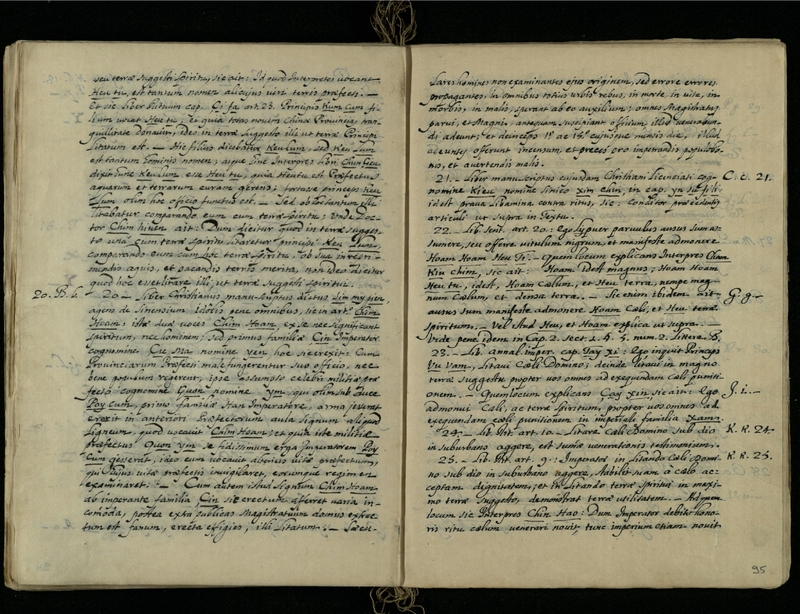 seu terræ suggesti spiritu, sic ait: Id quod Interpretes vocant
Heu tu, est tantum nomen alicujus viri terris præfecti. —
Et sic liber Rituum cap. Ci fa art. 23. Principis Kum Cum fi-
lium vocat Heu tu, et quia totas novem Chinæ Provincias tran-
quillitate donavit, ideo in terræ suggesto illi ut terræ Principi
litatum est. — Hic filius dicebatur Keu Lum, sed Keu Lum
est tantum hominis nomen; atque sine Interpres libri Chun Cieu
dixit tunc Keu Lum esse Heu tu, quia Heu tu est Præfectus
aquarum et terrarum curam gerens; fortasse princeps Keu
Lum olim hoc officio functus est. — Sed obstantum illi
litabatur comparando eum cum terræ spiritu; Unde Doc-
tor Chim hiuen ait: Dum dicitur quod in terræ sugges-
to una cum terræ spiritu litaretur principi Keu Lum,
comparando eum cum hoc terræ spiritu, ob sua in regi-
minibus aquis, et pacandis terris merita, non ideo dicitur
quod hoc esset litare illi, ut terræ suggesti spiritui.
20. B. b. 20. — Liber Christianus manuscriptus dictus Sim my pien
agens de Sinensium Idolis pene omnibus, sic in art. Chim
Hoam: istæ duæ voces Chim Hoam ex se nec significant
spiritum, nec hominem; sed primus familiæ Cin Imperator
cognomine Cie Ma nomine yen hoc ita erexit: Cum
Provinciarum Præfecti male fungerentur suo officio, nec
bene populum regerent, ipse assumpto celebri militiæ præ-
fecto cognomine Quon nomine ym, qui olim sub Duce
Poy Cum, primo familiæ Han Imperatore, arma tulerat
erexit in anteriori Præfectorum aula signum aliquod
ligneum, quod vocavit Chim Hoam; et quia iste militiæ
Præfectus Quon ym se fidissimum erga suum Patronum Poy
Cum gesserat, ideo eum vocavit alterius vitæ præfectum,
qui hujus vitæ præfectis invigilaret, eorumque regimen
examinaret. — Cum autem istud signum Chim Hoam
ab imperante familia Cin sic erectum afferret varia in-
comoda, postea extra publicas Magistratuum domus extruc-
tum est fanum, erecta effigies, illi litatum. — Sæcu-
lares homines non examinantes ejus originem, sed errore errores
propagantes, in omnibus totius urbis rebus, in morte, in vita, in
morbis, in malis, sperant ab eo auxilium: omnes Magistratus
parvi, et Magni, antequam suscipiant officium, illud venerabun-
di adeunt; et deinceps 1ª ac 15ª cujusque mensis die, illud
adeuntes offerunt incensum, et preces pro impetrandis populo bo-
nis, et avertendis malis.
21. — Liber manuscriptus cujusdam Christiani licenciati cog- C. c. 21.
nomine Kieu nomine Sinico Xim Chin, in cap. yn Su fi li
idest prava libamina contra ritus, sic: Conditor præcedentis
articuli ut supra in textu.
22. — Lib. sent. art. 20: Ego Ly puer parvulus ausus sum as-
sumere, seu offerre vitulum nigrum, et manifeste admonere
Hoam Hoam Heu Ti. — Quem locum explicans Interpres Cham
Kiu chim, sic ait: Hoam idest magnus; Hoam Hoam
Heu tu, idest, Hoam Cælum, et Heu terra, nempe mag-
num Cælum, et densa terra. — Sic enim ibidem ait G. g.
ausus sum manifeste admonere Hoam Cæli, et Heu terræ
Spiritum. — Vel Aliud Heu, et Hoam explica ut supra. —
Vide pene idem in Cap. 2. Sect. 1. § 5. num. 2. littera B.
23. — Lib. annal. imper. cap. Tay xi: Ego inquit Princeps
Vu Vam, litavi Cæli Domino; deinde litavi in magno
terræ suggesto propter vos omnes ad exequendam Cæli puniti-
onem. — Quem locum explicans Cay xin sic ait: Ego J. i.
admonui Cæli, ac terræ spiritum, propter vos omnes ad
exequendam cæli punitionem in imperiali familia Xam.
24. — Lib. Rit. art. 10. Litare Cæli Domino sub dio K. k. 24.
in suburbano aggere, est summæ venerationis testimonium.
25. — Lib. Rit. art. 9: Imperator in litando Cæli Domi- K. k. 25.
no sub dio in suburbano aggere, stabilit suam a cælo ac-
ceptam dignitatem; et in litando terræ spiritui in maxi-
mo terræ suggesto, demonstrat terræ utilitatem. — Ad quem
locum sic Interpres Chin Hao: Dum Imperator debito hono-
ris ritu cælum venerari novit, tunc imperium etiam novit
95